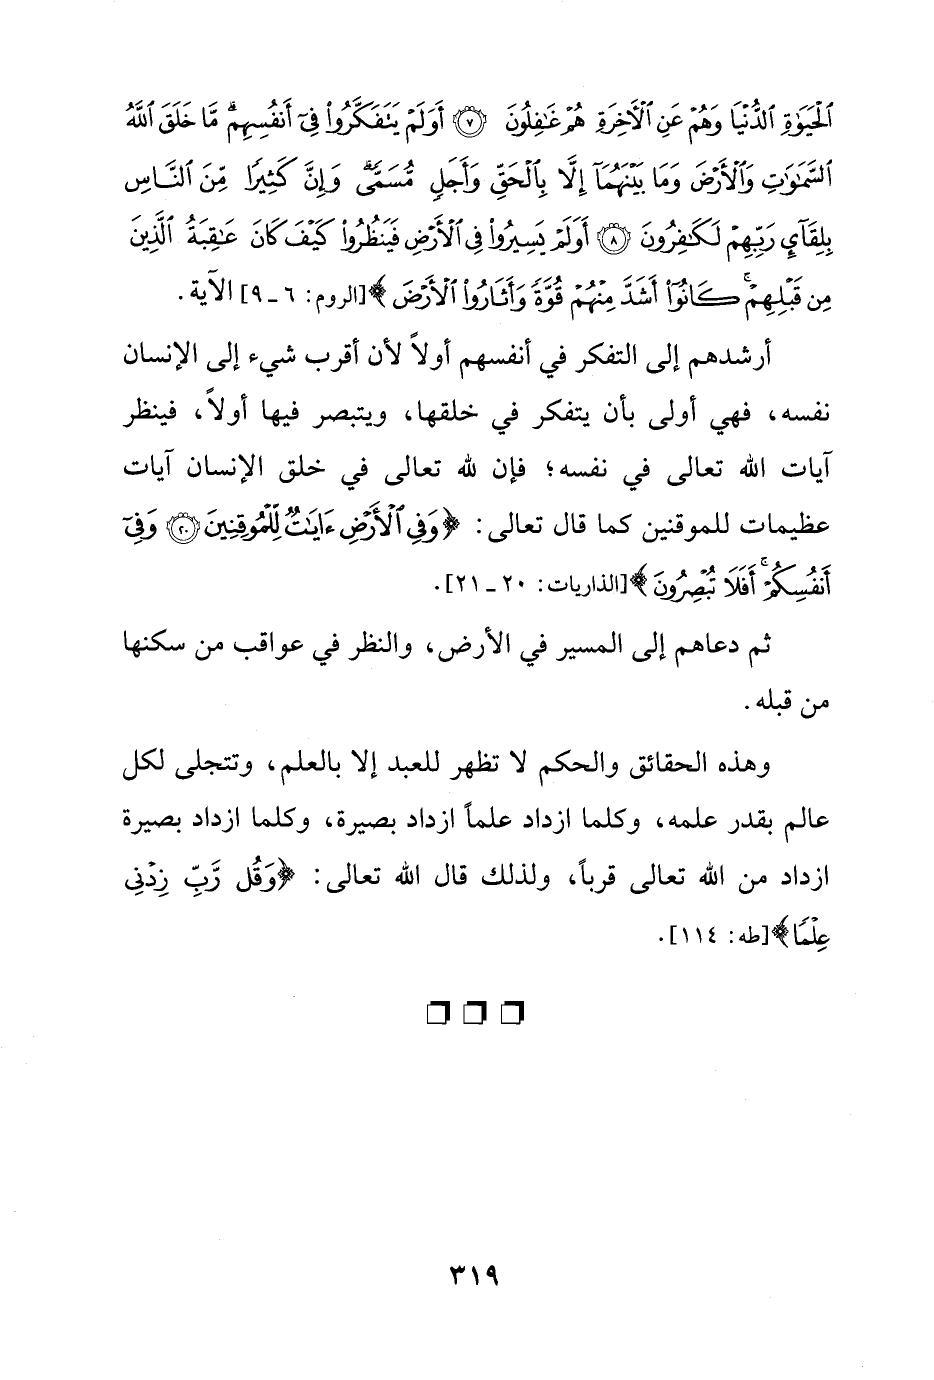 ٱلْحَيَوٰةِ ٱلدُّنْيَا وَهُمْ عَنِ ٱلْأَخِرَةِ هُمْ غَٰفِلُونَ ۝٧ أَوَلَمْ يَتَفَكَّرُوا۟ فِىٓ أَنفُسِهِم ۗ مَّا خَلَقَ ٱللَّهُ
ٱلسَّمَٰوَٰتِ وَٱلْأَرْضَ وَمَا بَيْنَهُمَآ إِلَّا بِٱلْحَقِّ وَأَجَلٍ مُّسَمًّى ۗ وَإِنَّ كَثِيرًا مِّنَ ٱلنَّاسِ
بِلِقَآئِ رَبِّهِمْ لَكَٰفِرُونَ ۝٨ أَوَلَمْ يَسِيرُوا۟ فِى ٱلْأَرْضِ فَيَنظُرُوا۟ كَيْفَ كَانَ عَٰقِبَةُ ٱلَّذِينَ
مِن قَبْلِهِمْ ۚ كَانُوٓا۟ أَشَدَّ مِنْهُمْ قُوَّةً وَأَثَارُوا۟ ٱلْأَرْضَ ﴾ [الروم: ٦ـ٩] الآية.
أرشدهم إلى التفكر في أنفسهم أولاً لأن أقرب شيء إلى الإنسان
نفسه، فهي أولى بأن يتفكر في خلقها، ويتبصر فيها أولاً، فينظر
آيات الله تعالى في نفسه؛ فإن لله تعالى في خلق الإنسان آيات
عظيمات للموقنين كما قال تعالى: ﴿ وَفِى ٱلْأَرْضِ ءَايَٰتٌ لِّلْمُوقِنِينَ ۝٢٠ وَفِىٓ
أَنفُسِكُمْ ۚ أَفَلَا تُبْصِرُونَ ﴾ [الذاريات: ٢٠ ـ ٢١].
ثم دعاهم إلى المسير في الأرض، والنظر في عواقب من سكنها
من قبله.
وهذه الحقائق والحكم لا تظهر للعبد إلا بالعلم، وتتجلى لكل
عالم بقدر علمه، وكلما ازداد علماً ازداد بصيرة، وكلما ازداد بصيرة
ازداد من الله تعالى قرباً، ولذلك قال الله تعالى: ﴿ وَقُل رَّبِّ زِدْنِى
عِلْمًا ﴾ [طه: ١١٤].
٣١٩